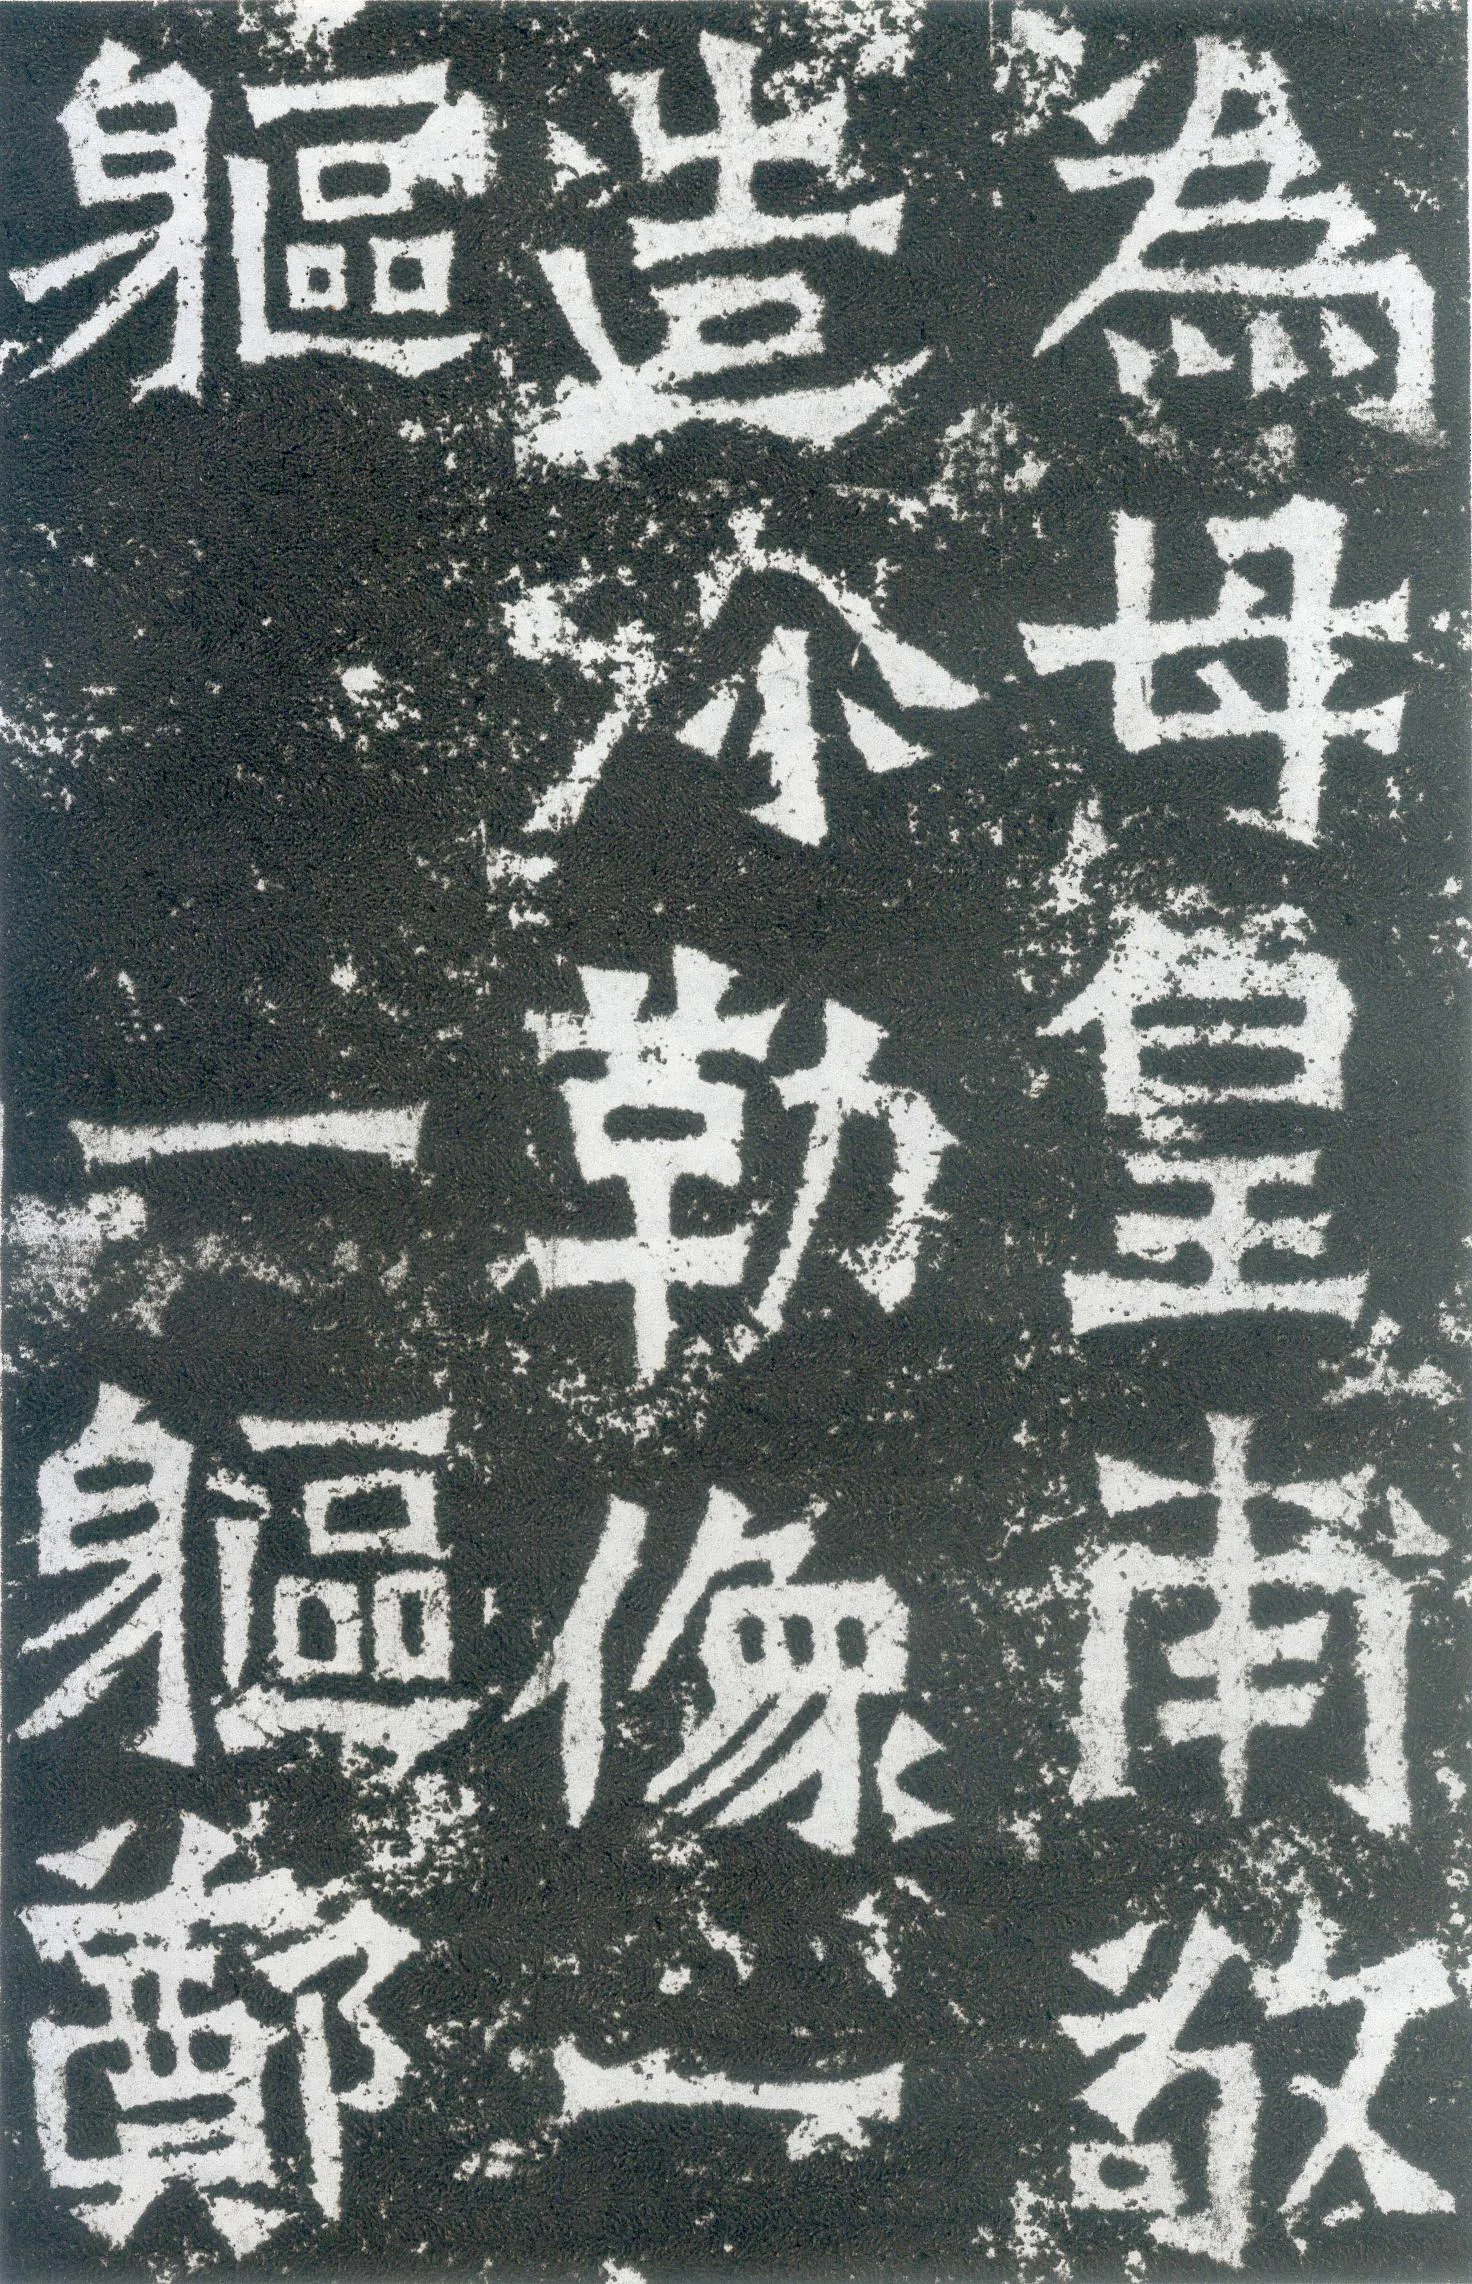 為母皇甫敬
造弥勒像一
軀一軀鄭